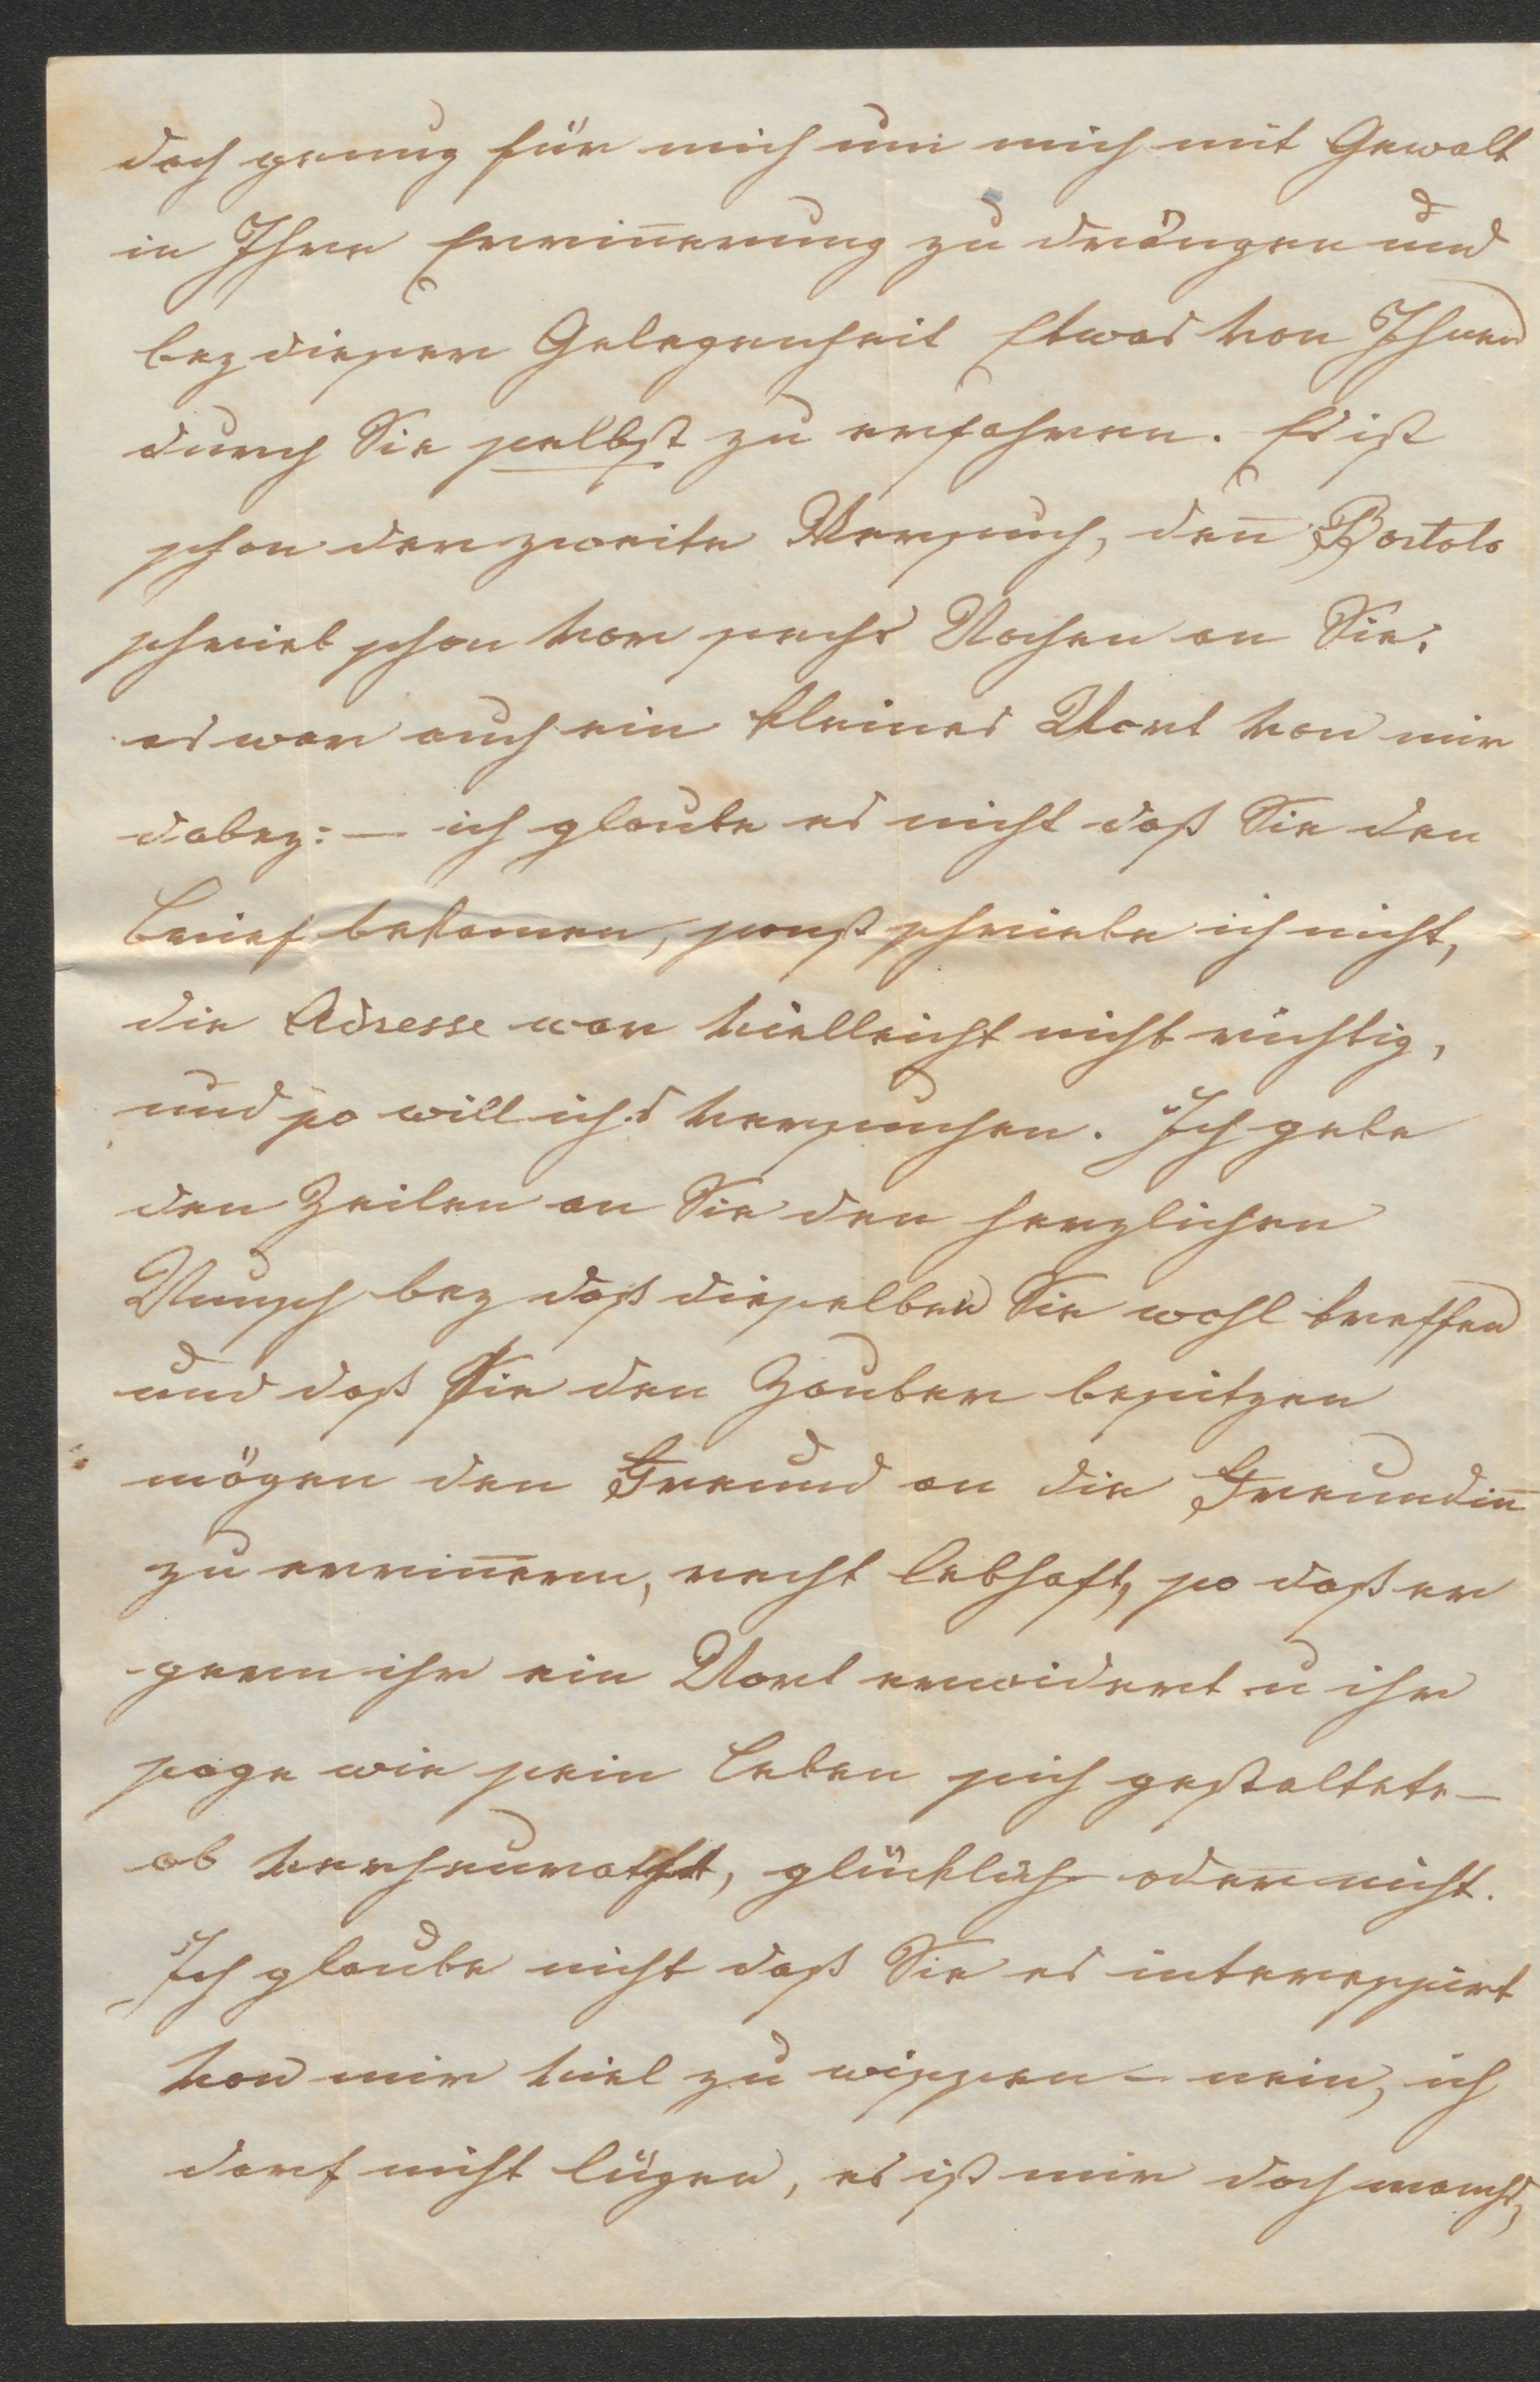 doch genug für mich um mich mit Gewalt
in Ihre Errin̄erung zu drängen und
bey dieser Gelegenheit Etwas von Ihnen
durch Sie selbst zu erfahren. Es ist
schon der zweite Versuch, den̄ Bartolo
schrieb schon vor sechs Wochen an Sie;
es war auch ein kleines Wort von mir
dabey: — ich glaube es nicht daß Sie den
Brief bekamen, sonst schriebe ich nicht,
die Adresse war vielleicht nicht richtig,
und so will ichs versuchen. Ich gebe
den Zeilen an Sie den herzlichen
Wunsch bey daß dieselben Sie wohl treffen
und daß Sie den Zauber besitzen
mögen den Freund an die Freundin̄
zu errin̄ern, recht lebhaft, so daß er
gern ihr ein Wort erwidert u ihr
sage wie sein Leben sich gestaltete —
ob verheurathet, glücklich oder nicht.
Ich glaube nicht daß Sie es interessirt
von mir viel zu wissen — nein, ich
darf nicht lügen, es ist mir doch manchs,